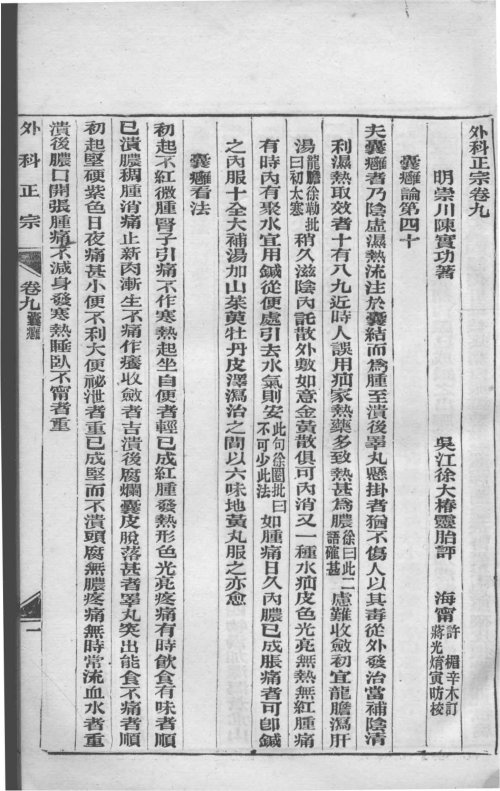 外科正宗卷九
明崇川陳實功著　吳江徐大椿靈胎評　海甯許楣辛木訂　蔣光焴寅昉校
囊癰論第四十
夫囊癰者乃陰虛濕熱流注於囊結而爲腫至潰後睪丸懸掛者猶不傷人以其毒從外發治當補陰淸
利濕熱取效者十有八九近時人誤用疝家熱藥多致熱甚爲膿徐曰此二語確甚慮難收斂初宜龍膽瀉肝
湯龍膽徐勒批曰初太寒稍久滋陰內託散外敷如意金黃散俱可內消又一種水疝皮色光亮無熱無紅腫痛
有時內有聚水宜用鍼從便處引去水氣則安此句徐圈批曰不可少此法如腫痛日久內膿已成脹痛者可卽鍼
之內服十全大補湯加山茱萸牡丹皮澤瀉治之間以六味地黃丸服之亦愈
囊癰看法
初起不紅微腫腎子引痛不作寒熱起坐自便者輕已成紅腫發熱形色光亮疼痛有時飮食有味者順
已潰膿稠腫消痛止新肉漸生不痛作癢收斂者吉潰後腐爛囊皮脫落甚者睪丸突出能食不痛者順
初起堅硬紫色日夜痛甚小便不利大便祕泄者重已成堅而不潰頭腐無膿疼痛無時常流血水者重
潰後膿口開張腫痛不減身發寒熱睡臥不甯者重
外科正宗　卷九囊癰　一